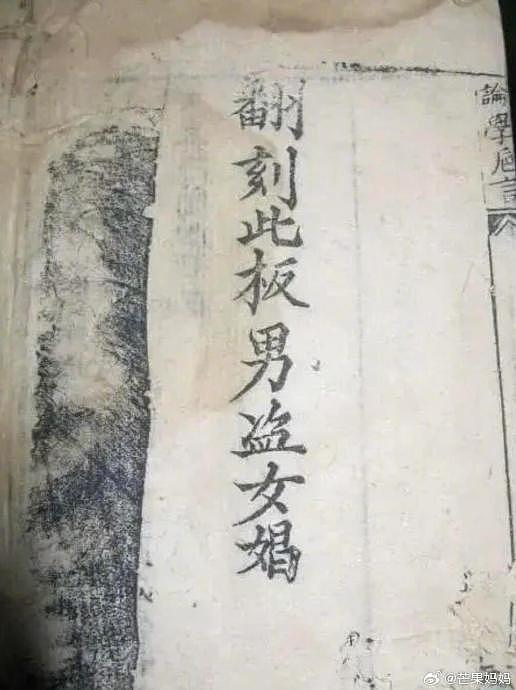 論學卮言
翻刻此板男盗女娼
@芒果妈妈